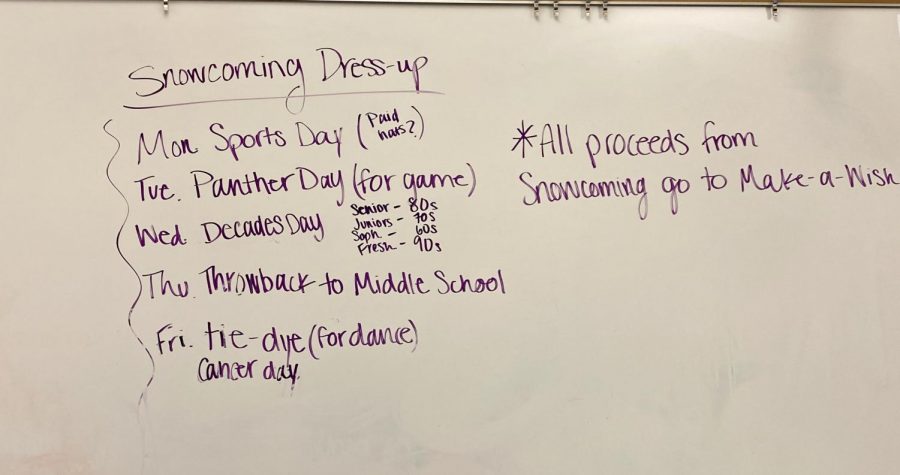 Snowcoming Dress-up
Mon Sports Day (Paid hats?)
Tue. Panther Day (for game)
Wed. Decades Day
Senior - 80s
Juniors - 70s
Soph. - 60s
Fresh - 90s
Thu. Throwback to Middle School
Fri. tie-dye (for dance)
Cancer day
*All proceeds from
Snowcoming go to Make-a-Wish